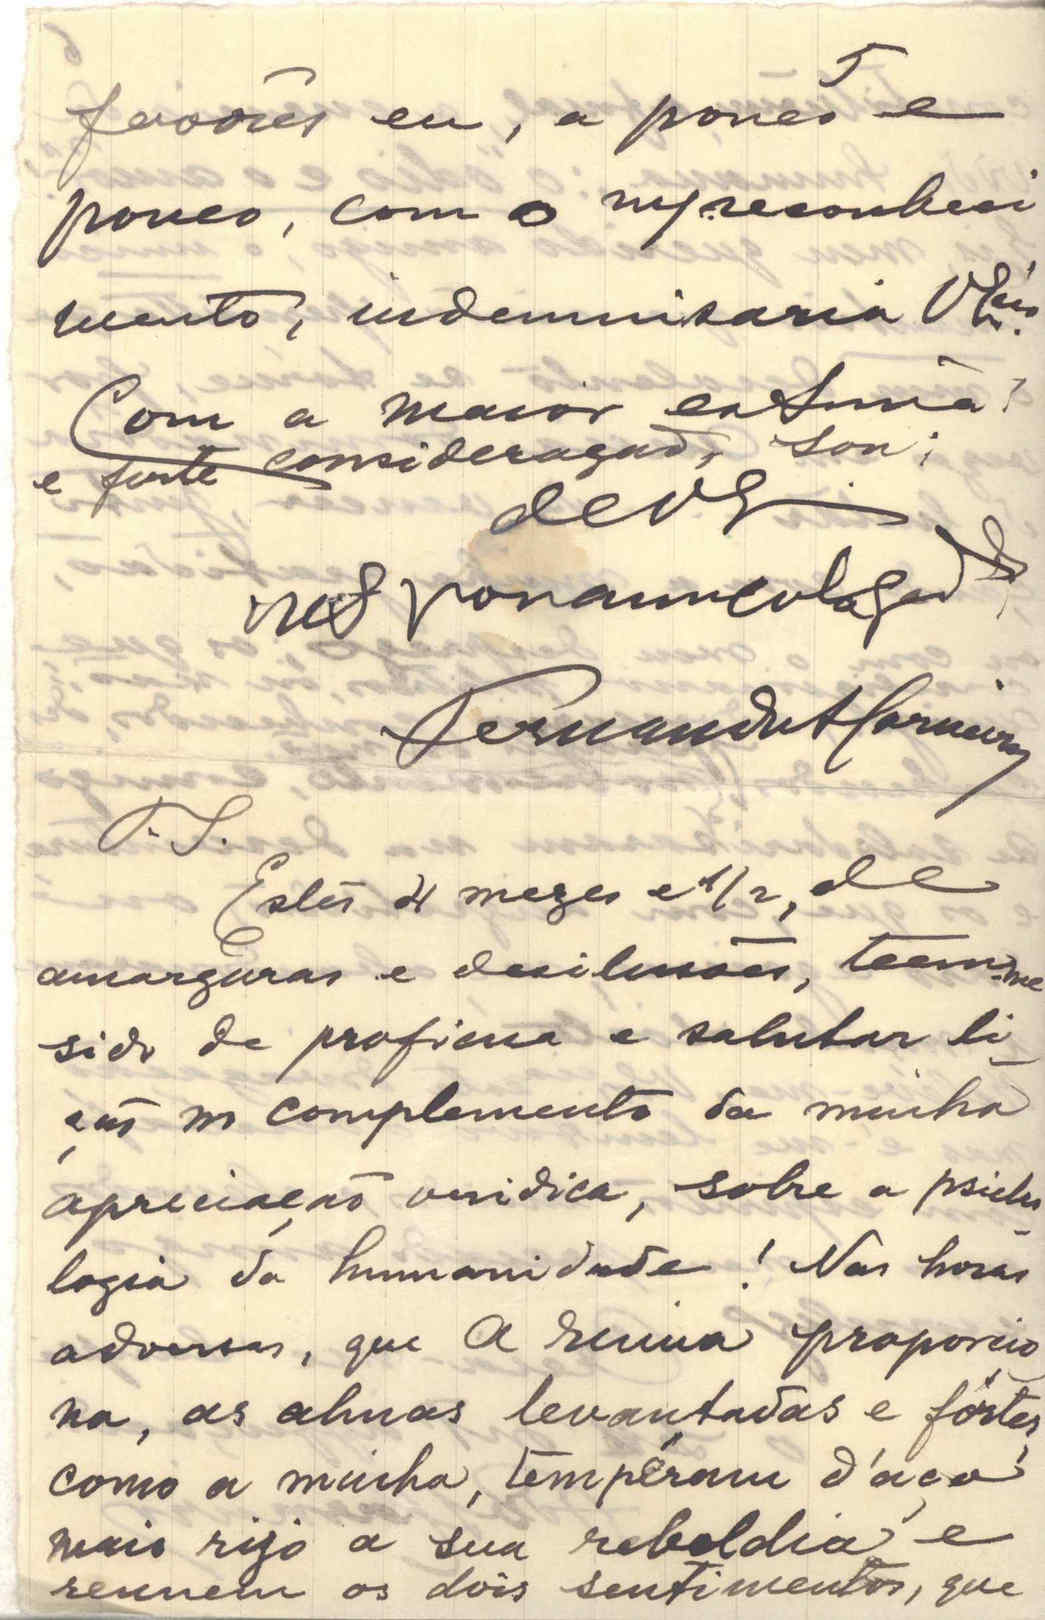 5
favores eu, a pouco e
pouco, com o meu reconheci
mento, indemnisaria V. Ex.cia
Com a maior estima
e forte consideração, sou:
de V. Ex.
Fernando A Carneiro
P. S.
Estes 4 mezes e 1/2, de
amarguras e desilusões, teem-me
sido de proficua e salutar li
ção no complemento da minha
apreciação veridica, sobre a psicho
logia da humanidade! Nas horas
adversas, que a ruina proporcio
na, as almas levantadas e fórtes,
como a minha, tempéram d'aço
mais rijo a sua rebeldia e
reunem os dois sentimentos, que